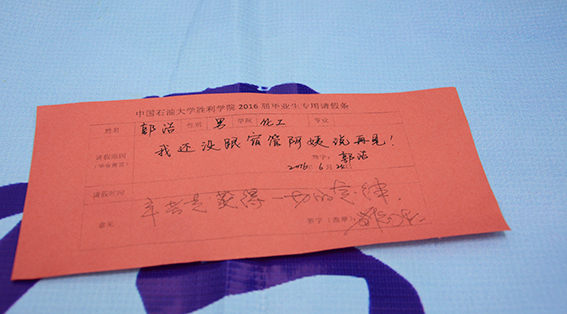 中国石油大学胜利学院 2016 届毕业生专用请假条
姓名 郭浩 性别 男 学院 化工 专业
请假原因 我还没跟宿管阿姨说再见!
签字: 郭浩
2016. 6
请假时间
辛苦是获得一切的定律
意见 签字(盖章):